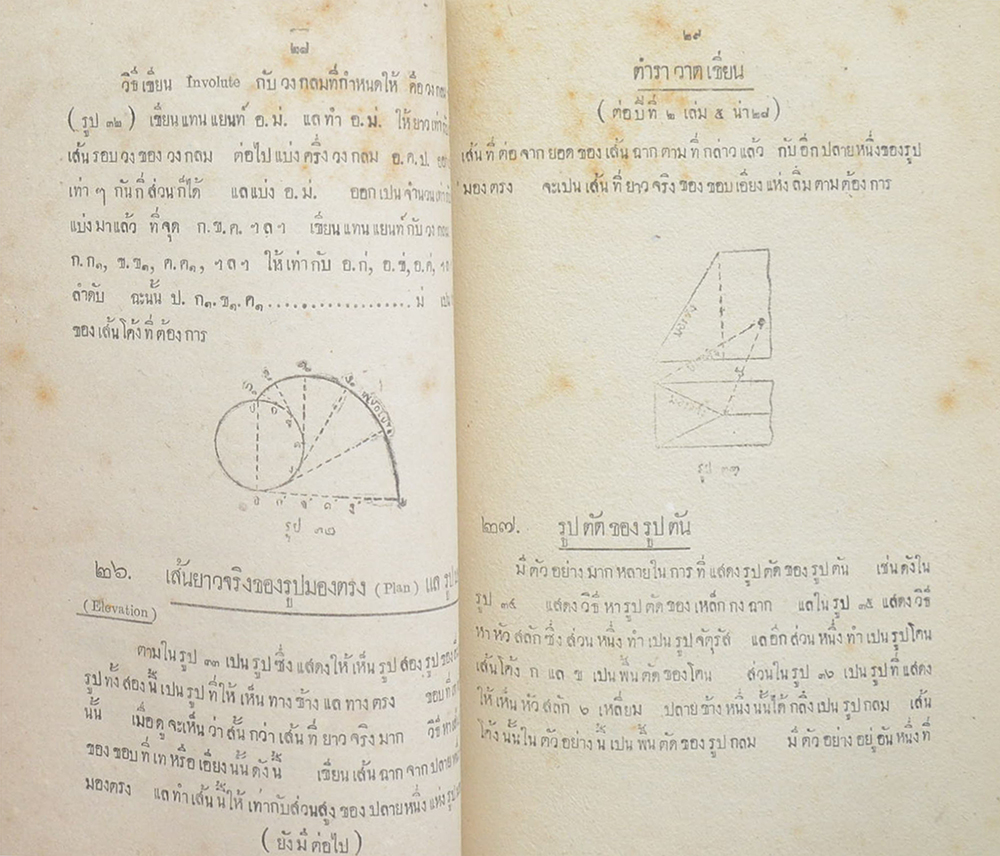 ๒๘
วิธีเขียน Involute กับ วงกลมที่กำหนดให้ คือ วงกลม
( รูป ๓๒ ) เขียน แทน แยนท์ อ. ม่. แล ทำ อ. ม่. ให้ ยาว เท่า กับ
เส้น รอบ วง ของ วง กลม ต่อไป แบ่ง ครึ่ง วง กลม อ. ค. ป.
เท่า ๆ กัน กี่ ส่วน ก็ได้ แล แบ่ง อ. ม่. ออก เปน จำนวน เท่า กับ
แบ่ง มา แล้ว ที่ จุด ก. ข. ค. ฯ ล ฯ เขียน แทน แยนท์ กับ วง กลม
ก. ก๑, ข. ข๑, ค. ค๑, ฯ ล ฯ ให้ เท่า กับ อ. ก่, อ. ข่, อ. ค่,
ลำดับ ฉะนั้น ป. ก๑. ข๑. ค๑ .................. ม่ เปน
ของ เส้น โค้ง ที่ ต้อง การ
รูป ๓๒
๒๖. เส้นยาวจริงของรูปมองตรง (Plan) แล รูป
( Elevation )
ตาม ใน รูป ๓๓ เปน รูป ซึ่ง แสดง ให้ เห็น รูป สอง รูป ของ
รูป ทั้ง สอง นี้ เปน รูป ที่ ให้ เห็น ทาง ข้าง แล ทาง ตรง ขอบ ที่
นั้น เมื่อ ดู จะ เห็น ว่า สั้น กว่า เส้น ที่ ยาว จริง มาก วิธี หา
ของ ขอบ ที่ เท หรือ เอียง นั้น ดัง นี้ เขียน เส้น ฉาก จาก ปลาย
มอง ตรง แล ทำ เส้น นี้ ให้ เท่า กับ ส่วน สูง ของ ปลาย หนึ่ง แห่ง รูป
( ยัง มี ต่อ ไป )
๒๙
ตำรา วาด เขียน
( ต่อ ปี ที่ ๒ เล่ม ๕ น่า ๒๘ )
เส้น ที่ ต่อ จาก ยอด ของ เส้น ฉาก ตาม ที่ กล่าว แล้ว กับ อีก ปลาย หนึ่ง ของ รูป
มอง ตรง จะ เปน เส้น ที่ ยาว จริง ของ ขอบ เอียง แห่ง ลิ่ม ตาม ต้อง การ
มองข้าง
ยาวจริง
มองตรง
รูป ๓๓
๒๗. รูป ตัด ของ รูป ตัน
มี ตัว อย่าง มาก หลาย ใน การ ที่ แสดง รูป ตัด ของ รูป ตัน เช่น ดัง ใน
รูป ๓๔ แสดง วิธี หา รูป ตัด ของ เหล็ก กง ฉาก แล ใน รูป ๓๕ แสดง วิธี
หา หัว สลัก ซึ่ง ส่วน หนึ่ง ทำ เปน รูป จัตุรัส แล อีก ส่วน หนึ่ง ทำ เปน รูป โคน
เส้น โค้ง ก แล ข เปน พื้น ตัด ของ โคน ส่วน ใน รูป ๓๖ เปน รูป ที่ แสดง
ให้ เห็น หัว สลัก ๖ เหลี่ยม ปลาย ข้าง หนึ่ง นั้น ได้ กลึง เปน รูป กลม เส้น
โค้ง นั้น ใน ตัว อย่าง นี้ เปน พื้น ตัด ของ รูป กลม มี ตัว อย่าง อยู่ อัน หนึ่ง ที่